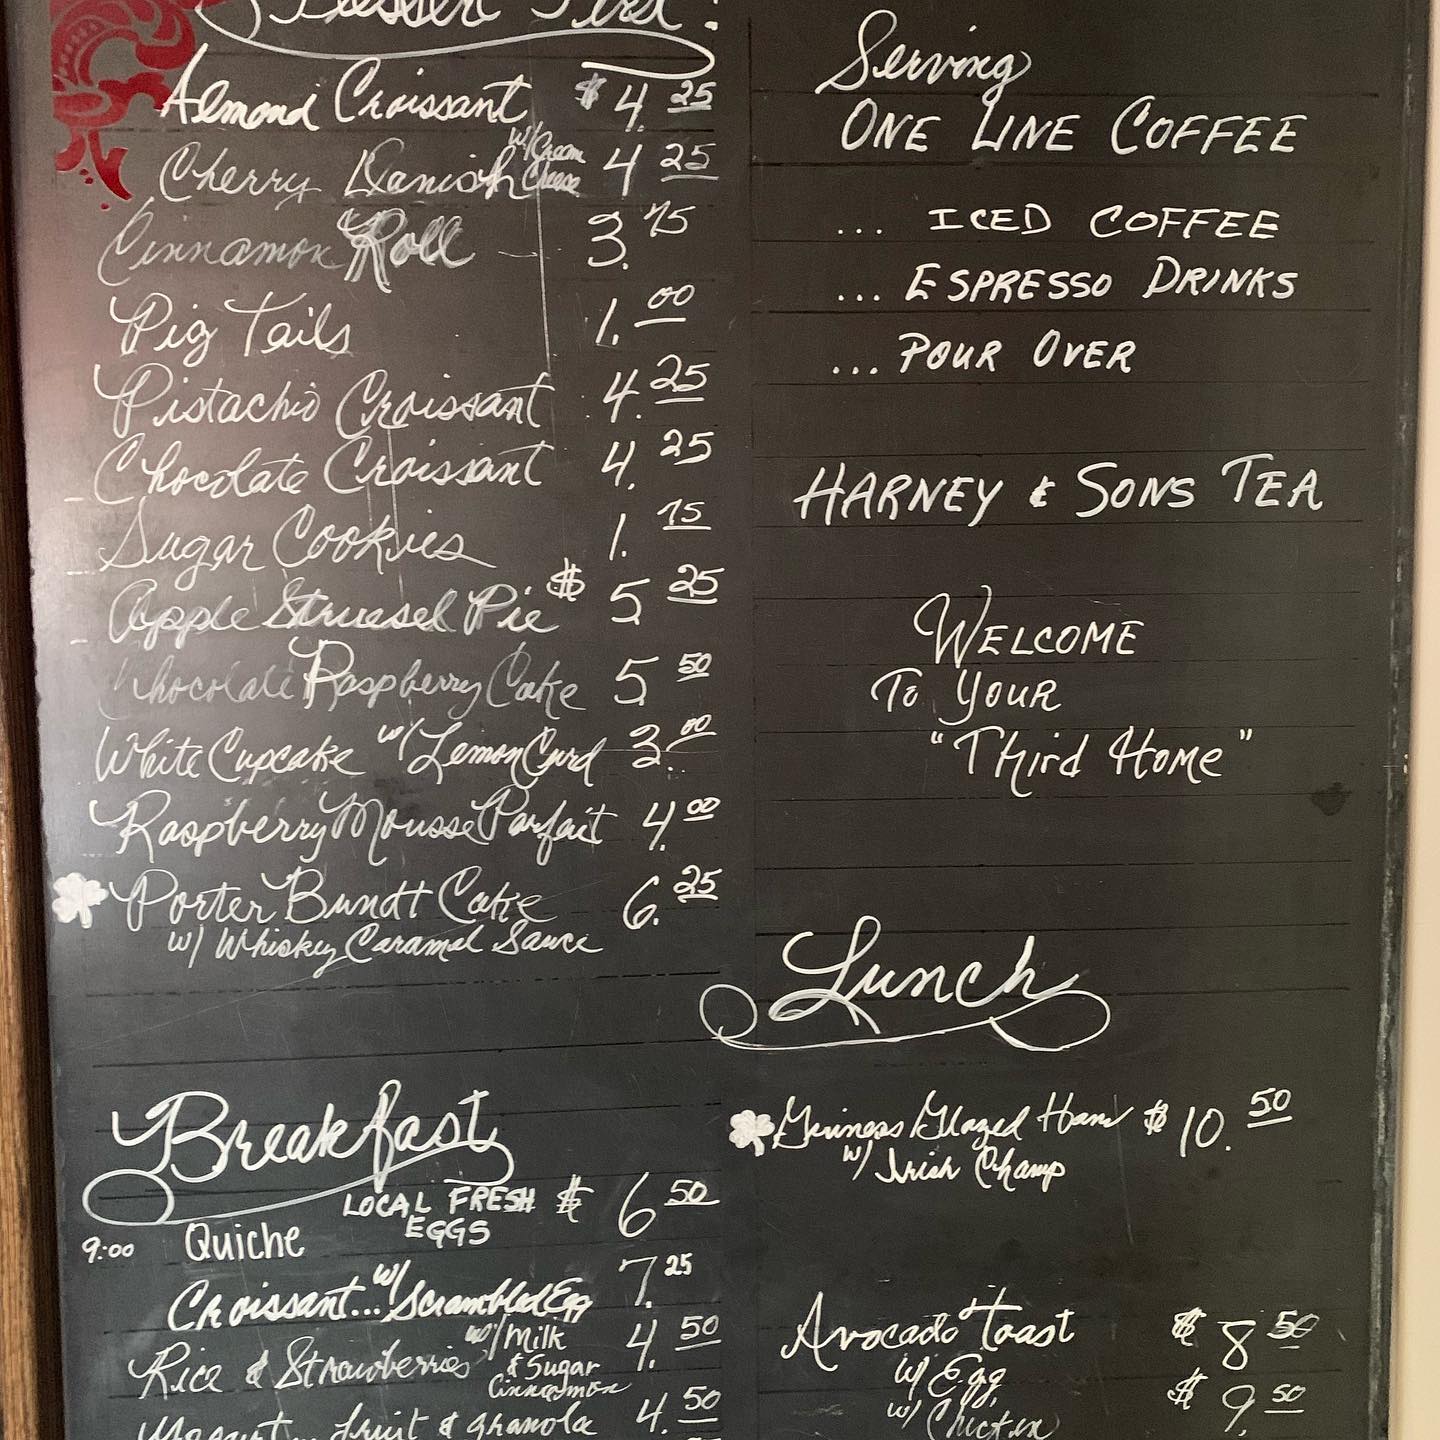 Dessert First!
Almond Croissant $4.25
Cherry Danish w/Cream Cheese 4 25
Cinnamon Roll 3.75
Pig Tails 1.00
Pistachio Croissant 4.25
Chocolate Croissant 4.25
Sugar Cookies 1.75
Apple Struesel Pie $5 25
Chocolate Raspberry Cake 5.50
White Cupcake w/ Lemon Curd 3.00
Raspberry Mousse Parfait 4.00
Porter Bundt Cake 6.25
w/ Whiskey Caramel Sauce
Breakfast
LOCAL FRESH EGGS $6 50
9:00 Quiche
Croissant... w/ Scrambled Egg 7.25
Rice & Strawberries w/ Milk 4.50
& Sugar
Cinnamon
Yogurt fruit & granola 4.50
Serving
ONE LINE COFFEE
... ICED COFFEE
... ESPRESSO DRINKS
... POUR OVER
HARNEY & SONS TEA
WELCOME
TO YOUR
"Third Home"
Lunch
Guiness Glazed Ham $10.50
w/ Irish Champ
Avocado toast $8 50
w/ Egg, $9.50
w/ Chicken